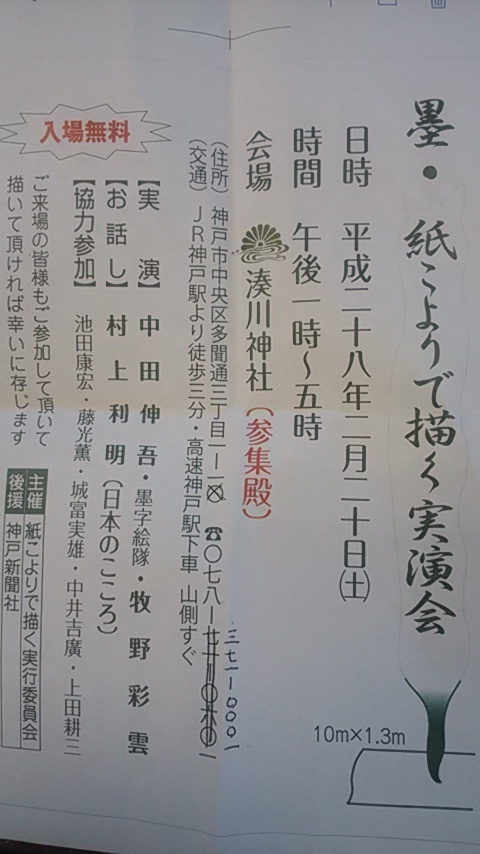 墨・紙こよりで描く実演会
10m×1.3m
日時 平成二十八年二月二十日(土)
時間 午後一時～五時
会場 湊川神社(参集殿)
(住所) 神戸市中央区多聞通三丁目一ー一 ☎〇七八ー
三七一-0001
(交通) JR神戸駅より徒歩三分・高速神戸駅下車 山側すぐ
【実演】 中田伸吾・墨字絵隊・牧野彩雲
【お話し】 村上利明(日本のこころ)
【協力参加】 池田康宏・藤光薫・城富実雄・中井吉廣・上田耕三
入場無料
ご来場の皆様もご参加して頂いて
描いて頂ければ幸いに存じます
主催 紙こよりで描く実行委員会
後援 神戸新聞社